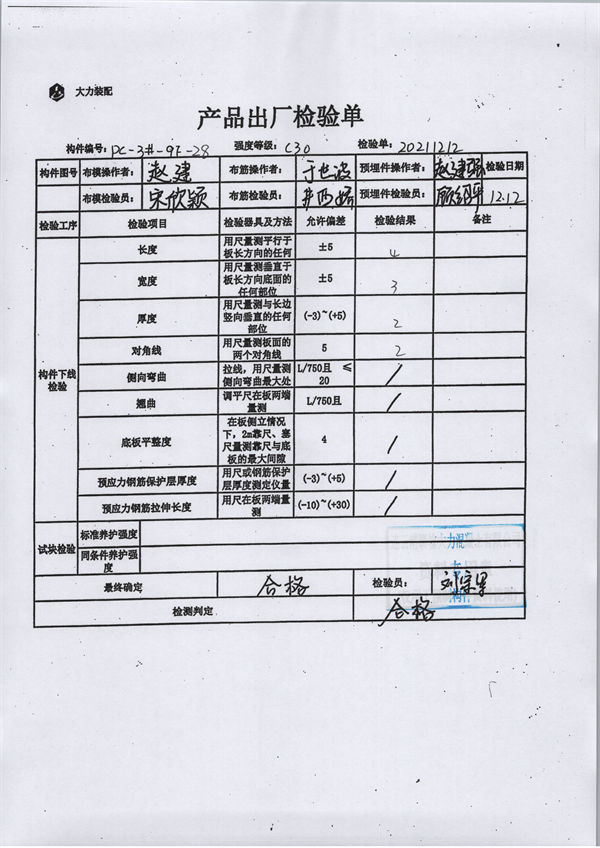 大力装配
产品出厂检验单
构件编号: PC-3#-9F-28 强度等级: C30 检验单: 20211212
构件图号 布模操作者: 赵建 布筋操作者: 于世波 预埋件操作者: 赵建强 检验日期
布模检验员: 宋欣颖 布筋检验员: 预埋件检验员: 12.12
检验工序 检验项目 检验器具及方法 允许偏差 检验结果 备注
构件下线检验
长度 用尺量测平行于板长方向的任何 ±5 4
宽度 用尺量测垂直于板长方向底面的任何部位 ±5 3
厚度 用尺量测与长边竖向垂直的任何部位 (-3)~(+5) 2
对角线 用尺量测板面的两个对角线 5 2
侧向弯曲 拉线，用尺量测侧向弯曲最大处 L/750且 ≤20 /
翘曲 调平尺在板两端量测 L/750且 /
底板平整度 在板侧立情况下，2m靠尺、塞尺量测靠尺与底板的最大间隙 4 /
预应力钢筋保护层厚度 用尺或钢筋保护层厚度测定仪量 (-3)~(+5) /
预应力钢筋拉伸长度 用尺在板两端量测 (-10)~(+30) /
试块检验 标准养护强度
同条件养护强度
最终确定 合格 检验员:
检测判定 合格